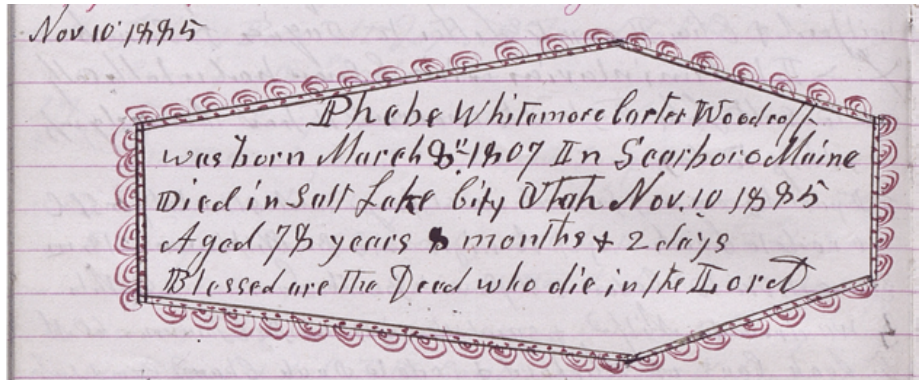 Nov 10 1885
Phebe Whitemore Carter Woodruff
was born March 8th 1807 In Scarboro Maine
Died in Salt Lake City Utah Nov. 10 1885
Aged 78 years 8 months & 2 days
Blessed are the Dead who die in the Lord